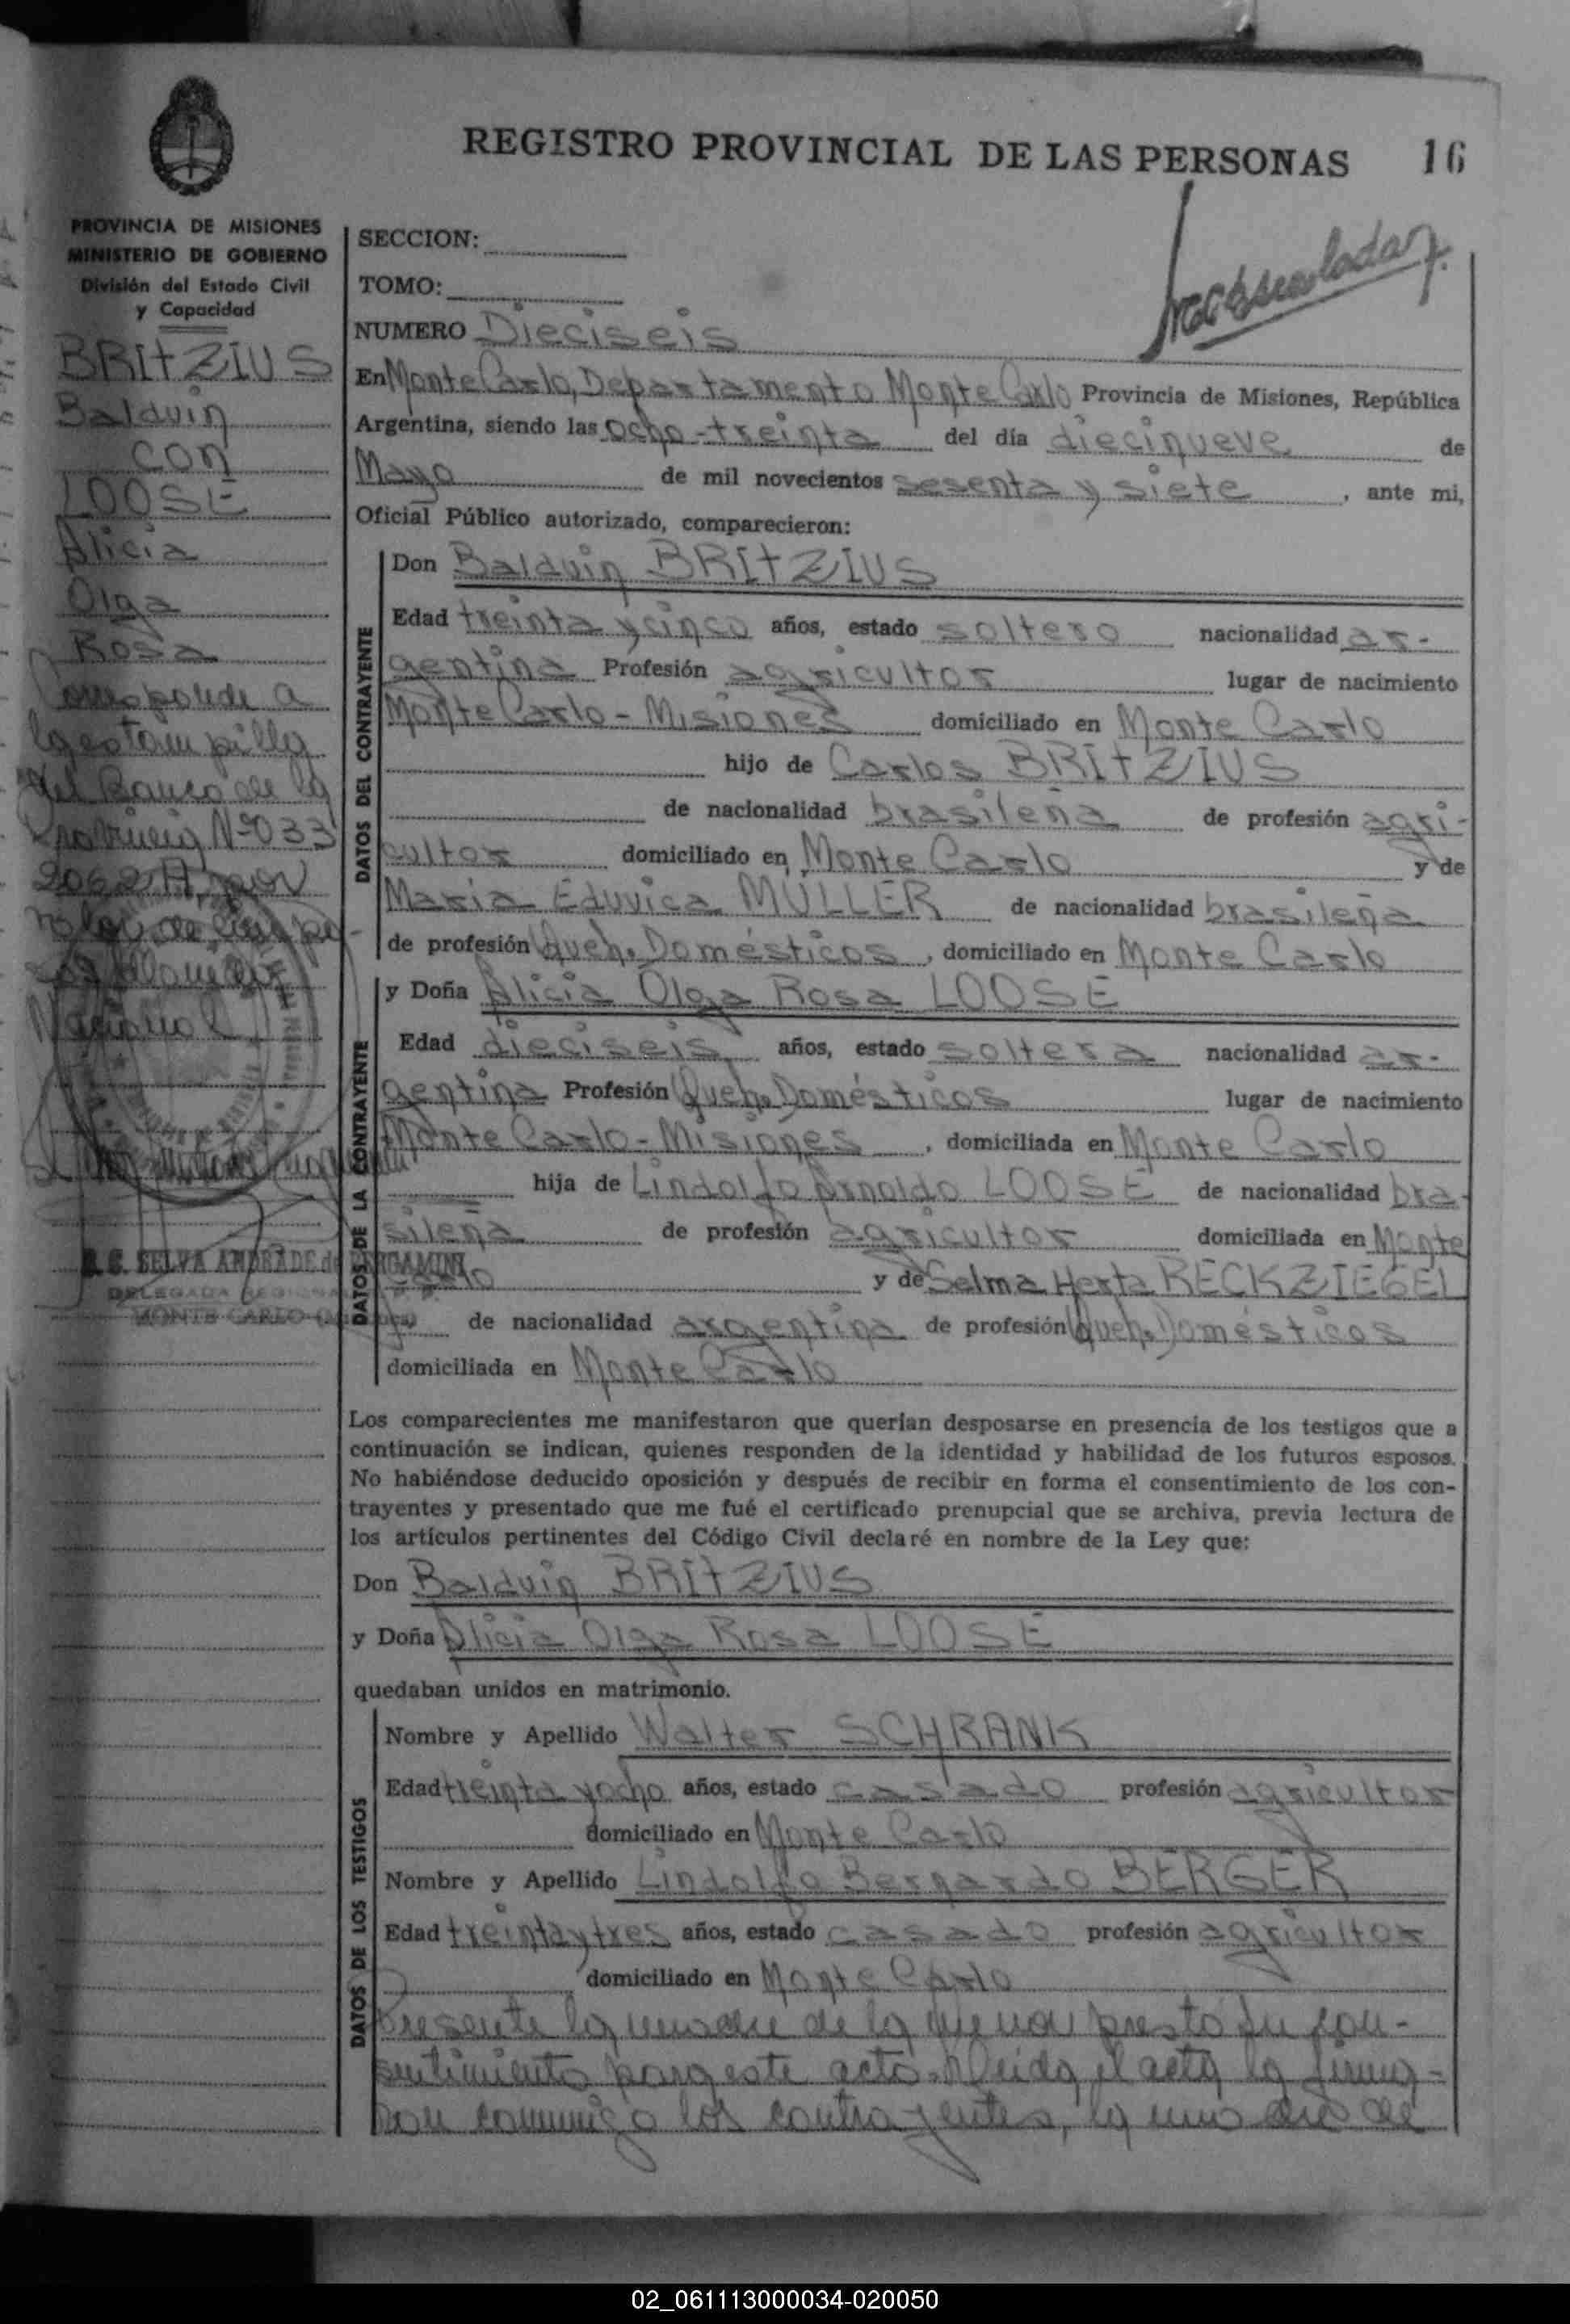 REGISTRO PROVINCIAL DE LAS PERSONAS 16
PROVINCIA DE MISIONES
MINISTERIO DE GOBIERNO
División del Estado Civil
y Capacidad
BRITZIUS
Balduin
con
LOOSE
Alicia
Olga
Rosa
Corresponde a
la estampilla
del Banco de la
Provincia Nº 033
9062 A, por
valor de cien pe-
sos Moneda
Nacional
S. C. SELVA ANDRADE de BERGAMINI
DELEGADA REGIONAL
MONTE CARLO
SECCION:
TOMO:
NUMERO Dieciseis
En Monte Carlo, Departamento Monte Carlo Provincia de Misiones, República
Argentina, siendo las ocho-treinta del día diecinueve de
Mayo de mil novecientos sesenta y siete, ante mi,
Oficial Público autorizado, comparecieron:
DATOS DEL CONTRAYENTE
Don Balduin BRITZIUS
Edad treinta y cinco años, estado soltero nacionalidad ar-
gentina Profesión agricultor lugar de nacimiento
Monte Carlo - Misiones domiciliado en Monte Carlo
hijo de Carlos BRITZIUS
de nacionalidad brasileña de profesión agri-
cultor domiciliado en Monte Carlo y de
Maria Eduvica MÜLLER de nacionalidad brasileña
de profesión Queh. Domésticos, domiciliado en Monte Carlo
DATOS DE LA CONTRAYENTE
y Doña Alicia Olga Rosa LOOSE
Edad dieciseis años, estado soltera nacionalidad ar-
gentina Profesión Queh. Domésticos lugar de nacimiento
Monte Carlo - Misiones, domiciliada en Monte Carlo
hija de Lindolfo Arnoldo LOOSE de nacionalidad bra-
sileña de profesión agricultor domiciliada en Monte
Carlo y de Selma Herta RECKZIEGEL
de nacionalidad argentina de profesión Queh. Domésticos
domiciliada en Monte Carlo
Los comparecientes me manifestaron que querían desposarse en presencia de los testigos que a
continuación se indican, quienes responden de la identidad y habilidad de los futuros esposos.
No habiéndose deducido oposición y después de recibir en forma el consentimiento de los con-
trayentes y presentado que me fué el certificado prenupcial que se archiva, previa lectura de
los artículos pertinentes del Código Civil declaré en nombre de la Ley que:
Don Balduin BRITZIUS
y Doña Alicia Olga Rosa LOOSE
quedaban unidos en matrimonio.
DATOS DE LOS TESTIGOS
Nombre y Apellido Walter SCHRANK
Edad treinta y ocho años, estado casado profesión agricultor
domiciliado en Monte Carlo
Nombre y Apellido Lindolfo Bernardo BERGER
Edad treinta y tres años, estado casado profesión agricultor
domiciliado en Monte Carlo
Presente la madre de la menor prestó su con-
sentimiento para este acto. Leida el acta la firma-
ron conmigo los contrayentes, la madre de
02_061113000034-020050